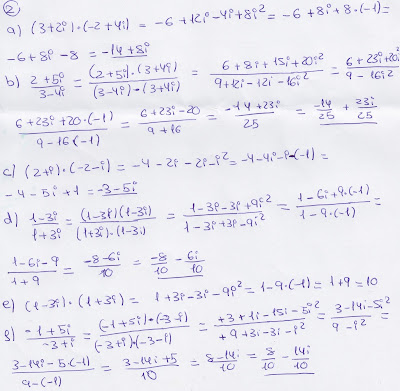 ②
a) (3+2i)·(-2+4i) = -6+12i-4i+8i² = -6+8i+8·(-1)=
-6+8i-8 = -14+8i
b) 2+5i/3-4i = (2+5i)·(3+4i)/(3-4i)·(3+4i) = 6+8i+15i+20i²/9+12i-12i-16i² = 6+23i+20i²/9-16i²
6+23i+20·(-1)/9-16(-1) = 6+23i-20/9+16 = -14+23i/25 = -14/25 + 23i/25
c) (2+i)·(-2-i) = -4-2i-2i-i² = -4-4i-i-(-1) =
-4-5i+1 = -3-5i
d) 1-3i/1+3i = (1-3i)(1-3i)/(1+3i)-(1-3i) = 1-3i-3i+9i²/1-3i+3i-9i² = 1-6i+9·(-1)/1-9·(-1) =
1-6i-9/1+9 = -8-6i/10 = -8/10 - 6i/10
e) (1-3i)·(1+3i) = 1+3i-3i-9i² = 1-9·(-1) = 1+9 = 10
g) -1+5i/-3+i = (-1+5i)·(-3-i)/(-3+i)·(-3-i) = +3+1i-15i-5i²/+9+3i-3i-i² = 3-14i-5i²/9-i² =
3-14i-5·(-1)/9-(-1) = 3-14i+5/10 = 8-14i/10 = 8/10 - 14i/10